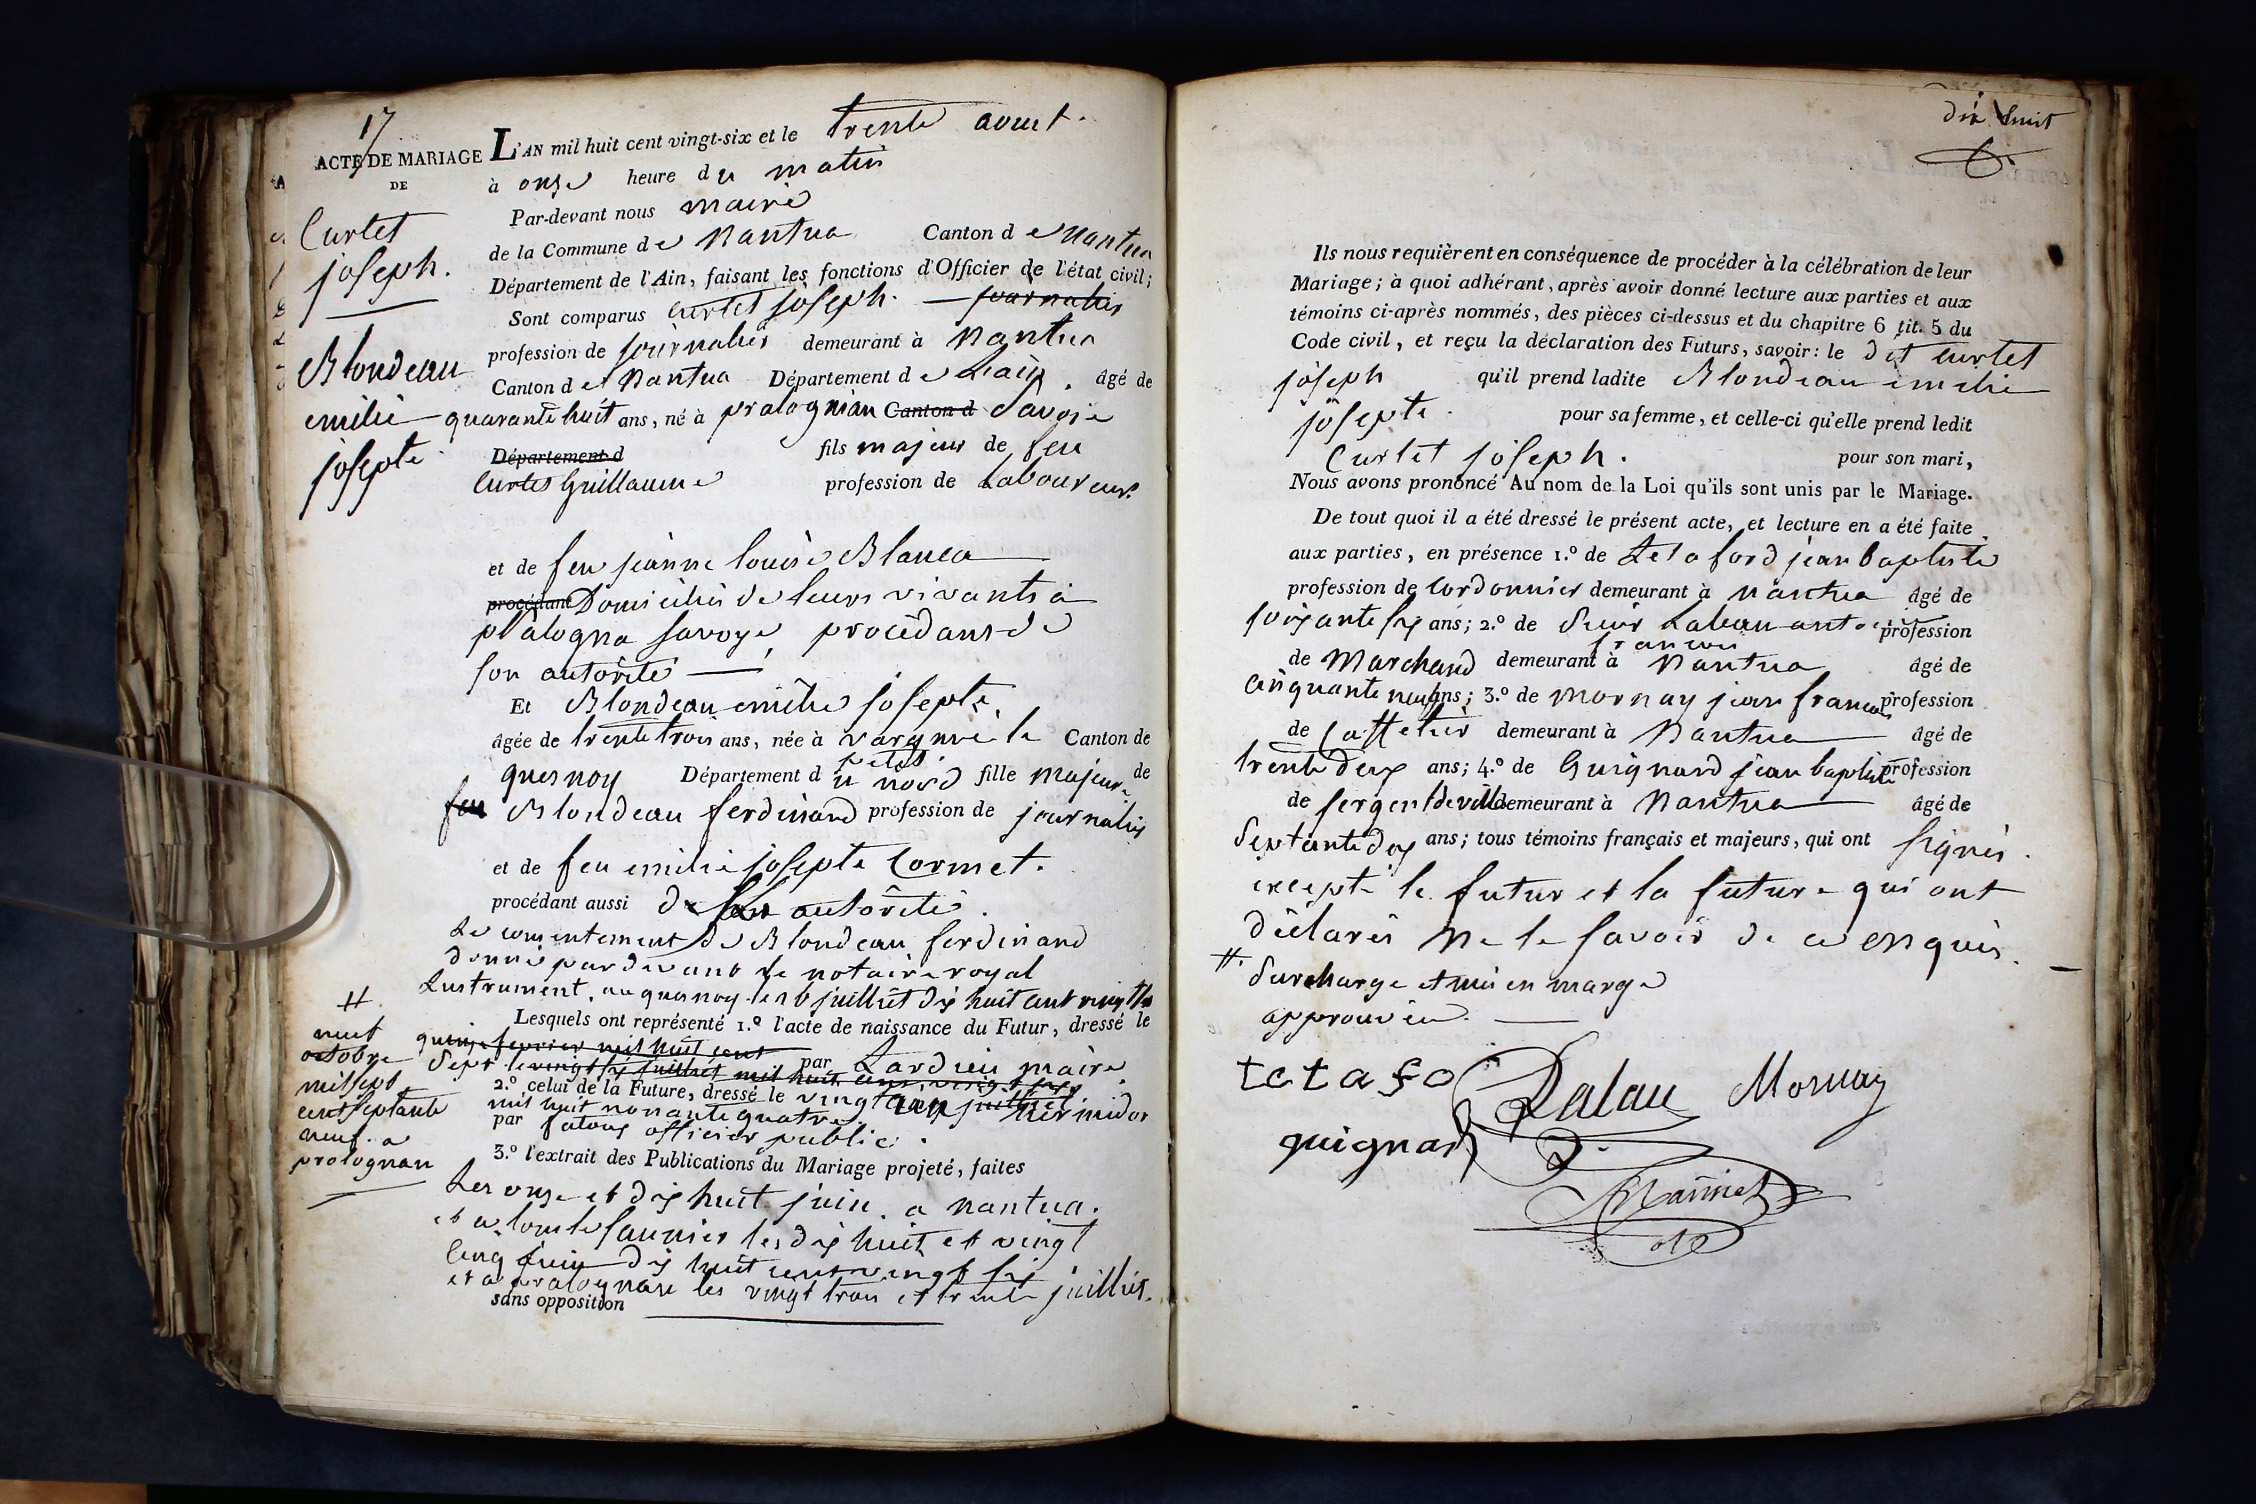 17
ACTE DE MARIAGE
DE
Curtet
joseph.
Blondeau
emilie
josepte
L'AN mil huit cent vingt-six et le trente aout.
à onze heure du matin
Par-devant nous maire
de la Commune de Nantua Canton de Nantua
Département de l'Ain, faisant les fonctions d'Officier de l'état civil;
Sont comparus Curtet joseph. journalier
profession de journalier demeurant à Nantua
Canton de Nantua Département de Lain. âgé de
quarante huit ans, né à pralognian Canton d Savoie
Département d fils majeur de feu
Curtet Guillaume profession de Laboureur.
et de feu jeanne louise Blanca
procédant Domiciliés de leurs vivants à
plalogna Savoye, procédant de
son autorité
Et Blondeau emilie josepte,
âgée de trente trois ans, née à vargnie le Canton de
petit.
quesnoy Département du nord fille majeure de
feu Blondeau ferdinand profession de journalier
et de feu emilie josepte Cormet.
procédant aussi de son autorité.
Le consentement de Blondeau ferdinand
donné pardevant le notaire royal
Lustrument, au quesnoy le 16 juillet dix huit cent vingt
Lesquels ont représenté 1.º l'acte de naissance du Futur, dressé le
quinze fevrier mil huit cent
Sept le vingt six juillet mil huit cent vingt six par Lardin maire
2.º celui de la Future, dressé le vingt juillet thermidor
mil huit nonante quatre
par officier public.
3.º l'extrait des Publications du Mariage projeté, faites
Les onze et dix huit juin. a nantua.
et a lons le Saunier les dix huit et vingt
cinq juin dix huit cent vingt six
et a pralognan les vingt trois et trente juillet.
sans opposition
#.
neuf
octobre
mil sept
cent septante
neuf. a
prolognan
dix huit
Ils nous requièrent en conséquence de procéder à la célébration de leur
Mariage; à quoi adhérant, après avoir donné lecture aux parties et aux
témoins ci-après nommés, des pièces ci-dessus et du chapitre 6 tit. 5 du
Code civil, et reçu la déclaration des Futurs, savoir: le dit Curtet
joseph qu'il prend ladite Blondeau emilie
josepte. pour sa femme, et celle-ci qu'elle prend ledit
Curtet joseph. pour son mari,
Nous avons prononcé Au nom de la Loi qu'ils sont unis par le Mariage.
De tout quoi il a été dressé le présent acte, et lecture en a été faite
aux parties, en présence 1.º de Tetaford jean baptiste
profession de Cordonnier demeurant à nantua âgé de
soixante six ans; 2.º de Sieur antoine profession
francois
de Marchand demeurant à Nantua âgé de
cinquante neuf ans; 3.º de Mornay jean francois profession
de Caffetier demeurant à Nantua âgé de
trente deux ans; 4.º de Guignard jean baptiste profession
de sergent de ville demeurant à Nantua âgé de
Septante dex ans; tous témoins français et majeurs, qui ont signés.
excepté le futur et la future qui ont
déclarés ne le savoir de ce enquis.
#. Surcharge et mis en marge
approuvée.
tetafo Mornay
guignard